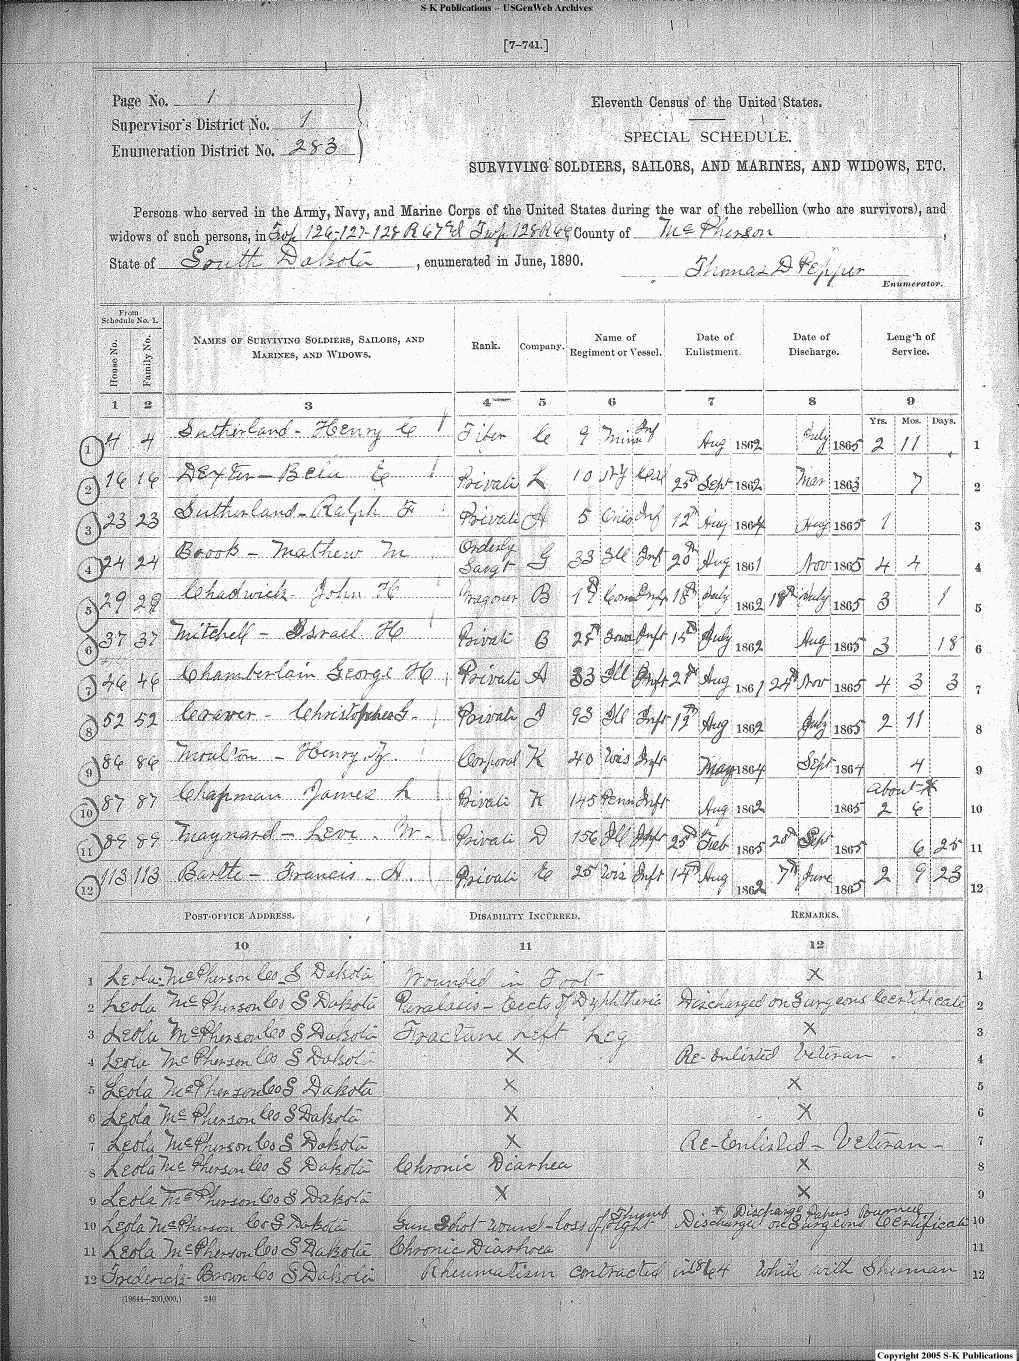 S-K Publications – USGenWeb Archives
[7–741.]
Page No. 1
Supervisor's District No. 1
Enumeration District No. 283
Eleventh Census of the United States.
SPECIAL SCHEDULE.
SURVIVING SOLDIERS, SAILORS, AND MARINES, AND WIDOWS, ETC.
Persons who served in the Army, Navy, and Marine Corps of the United States during the war of the rebellion (who are survivors), and
widows of such persons, in Twp 126-127-128 R 67 & Twp 128 R 66 County of McPherson,
State of South Dakota, enumerated in June, 1890.
Thomas D Pepper
Enumerator.
From Schedule No. 1.
House No. Family No. NAMES OF SURVIVING SOLDIERS, SAILORS, AND MARINES, AND WIDOWS. Rank. Company. Name of Regiment or Vessel. Date of Enlistment. Date of Discharge. Leng'h of Service.
1 2 3 4 5 6 7 8 9
Yrs. Mos. Days.
1 4 4 Sutherland - Henry C Fifer C 9 Minn Inf Aug 1862 July 1865 2 11 1
2 16 16 Dexter - Bela E Private L 10 NY Cav 25th Sept 1862 Mar 1863 7 2
3 23 23 Sutherland - Ralph F Private A 5 Inf 12th Aug 1864 Aug 1865 1 3
4 24 24 Brook - Mathew M Orderly Sargt G 33 Ill Inf 20th Aug 1861 Nov 1865 4 4 4
5 29 29 Chadwick - John H Wagoner B Inft 18th July 1862 18th July 1865 3 1 5
6 37 37 Mitchell - Israel H Private B 25th Iowa Inft 15th July 1862 Aug 1865 3 18 6
7 46 46 Chamberlain George H Private A 33 Ill Inft 21st Aug 1861 24th Nov 1865 4 3 3 7
8 52 52 Craver - Christopher G. Private I 93 Ill Inft 12th Aug 1862 July 1865 2 11 8
9 86 86 Moulton - Henry Corporal K 40 Wis Inft May 1864 Sept 1864 4 9
10 87 87 Chapman James L Private K 145 Penn Inft Aug 1862 1865 about * 2 6 10
11 89 89 Maynard - Levi. W. Private D 156 Ill Inft 25th Feb 1865 20th Sept 1865 6 25 11
12 113 113 Bartte - Francis. A. Private E 25 Wis Inft 14th Aug 1862 7th June 1865 2 9 23 12
POST-OFFICE ADDRESS. DISABILITY INCURRED. REMARKS.
10 11 12
1 Leola McPherson Co S Dakota Wounded in Foot X 1
2 Leola McPherson Co S Dakota Paralasis - Dyphtheria Discharged on Surgeons Certificate 2
3 Leola McPherson Co S Dakota Fracture Left Leg X 3
4 Leola McPherson Co S Dakota X Re-Enlisted Veteran. 4
5 Leola McPherson Co S Dakota X X 5
6 Leola McPherson Co S Dakota X X 6
7 Leola McPherson Co S Dakota X Re-Enlisted - Veteran - 7
8 Leola McPherson Co S Dakota Chronic Diarhea X 8
9 Leola McPherson Co S Dakota X X 9
10 Leola McPherson Co S Dakota Gun Shot wound - loss of right Thumb * Discharge Papers burned Discharged on Surgeons Certificate 10
11 Leola McPherson Co S Dakota Chronic Diarhoea 11
12 Frederick Brown Co S Dakota Rheumatism contracted in 1864 While with Shurman 12
(19544—200,000.) 240
Copyright 2005 S-K Publications